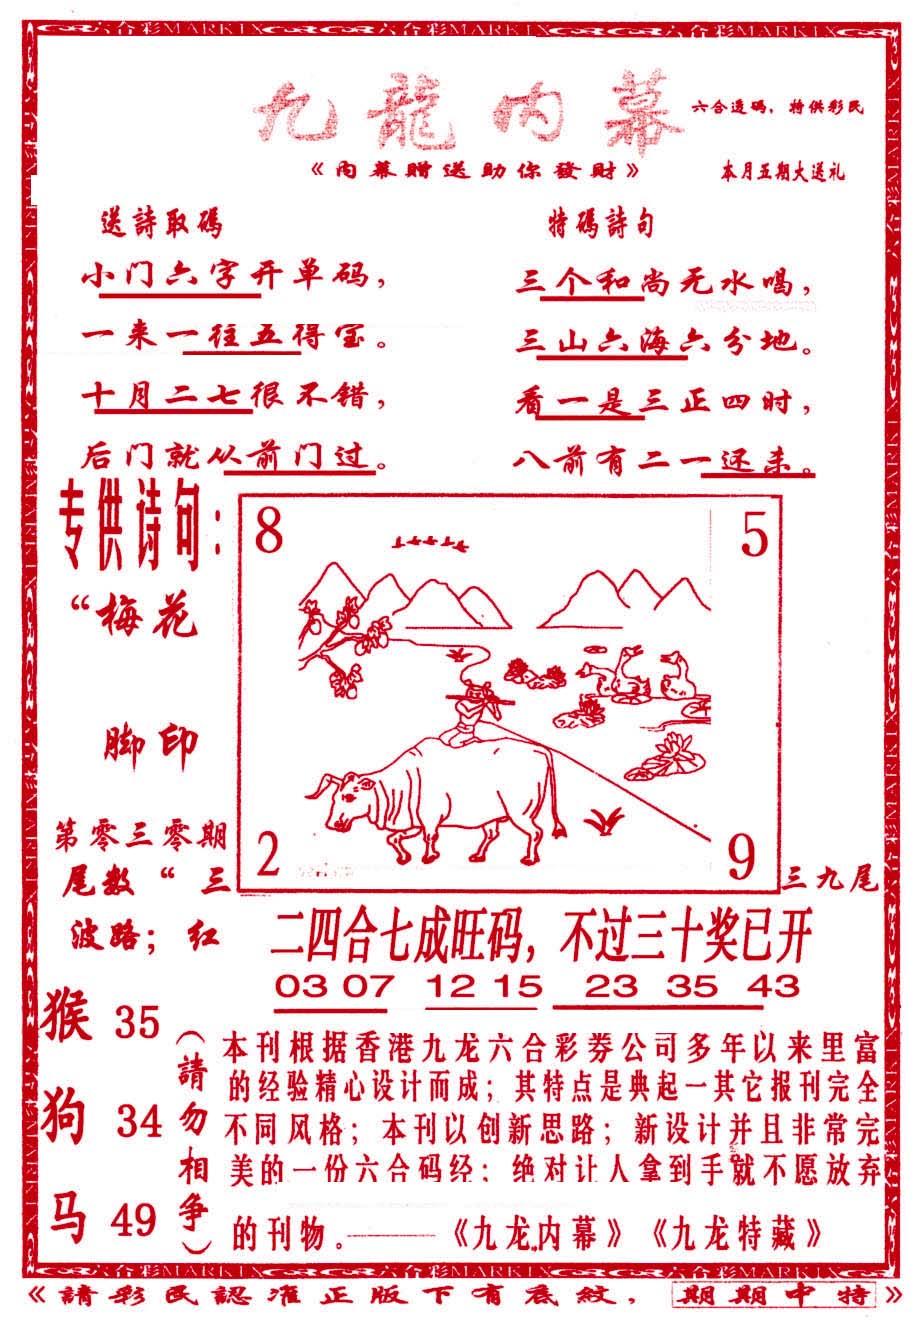 六合彩MARKIX 六合彩MARKIX 六合彩MARKIX
九龍内幕
六合透码，特供彩民
《内幕赠送助你發財》
本月五期大送礼
送詩取碼
小门六字开单码，
一来一往五得宝。
十月二七很不错，
后门就从前门过。
特碼詩句
三个和尚无水喝，
三山六海六分地。
看一是三正四时，
八前有二一还来。
专供诗句：
“梅花
脚印
第零三零期
尾数“三
波路；红
8
5
2
9
三九尾
二四合七成旺码，不过三十奖已开
03 07 12 15 23 35 43
猴 35
狗 34
马 49
（請勿相争）
本刊根据香港九龙六合彩券公司多年以来里富
的经验精心设计而成；其特点是典起一其它报刊完全
不同风格；本刊以创新思路；新设计并且非常完
美的一份六合码经；绝对让人拿到手就不愿放弃
的刊物。——《九龙内幕》《九龙特藏》
六合彩MARKIX 六合彩MARKIX 六合彩MARKIX
《請彩民認准正版下有底紋，期期中特》